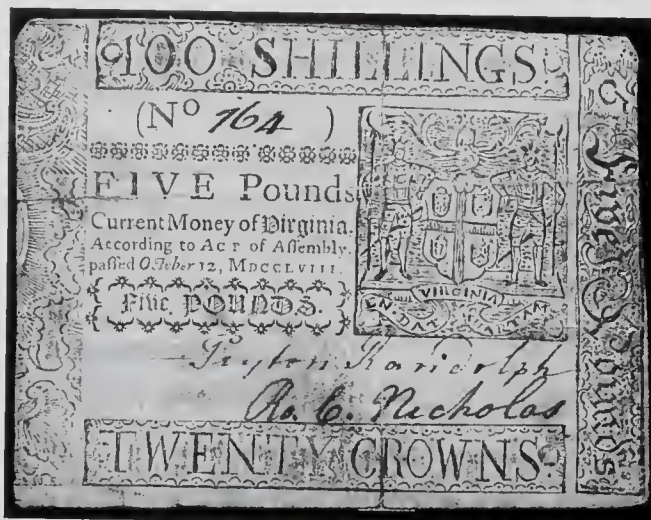 100 SHILLINGS
(No 164 )
FIVE Pounds
Current Money of Virginia.
According to ACT of Aſſembly.
paſſed October 12, MDCCLVIII.
Five POUNDS.
VIRGINIA
EN DAT QUARTAM
Peyton Randolph
Ro. C. Nicholas
TWENTY CROWNS
Five Pounds